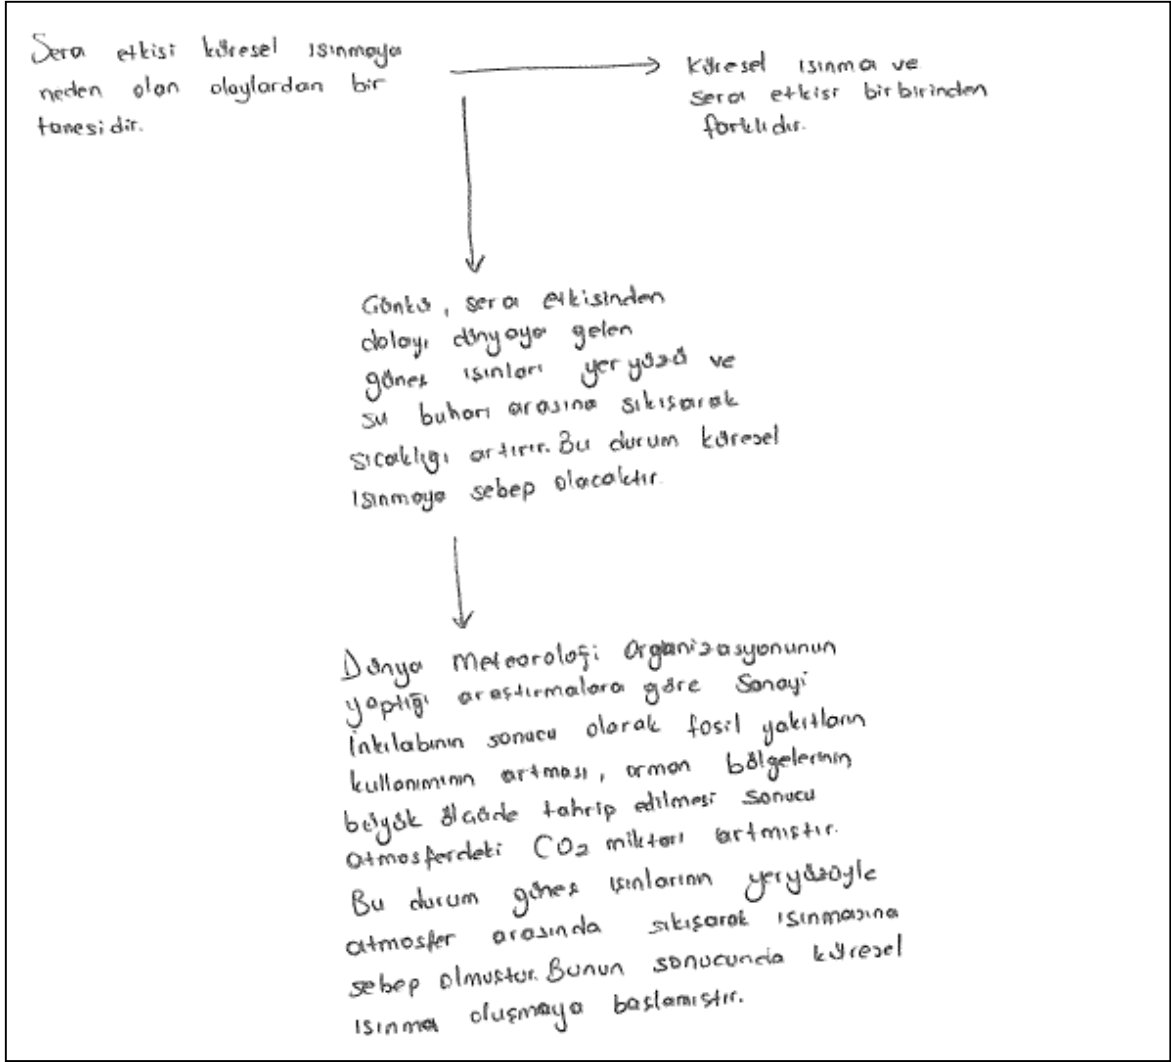 Sera etkisi küresel ısınmaya
neden olan olaylardan bir
tanesidir.
Küresel ısınma ve
sera etkisi birbirinden
farklıdır.
Çünkü, sera etkisinden
dolayı dünyaya gelen
güneş ışınları yeryüzü ve
su buharı arasına sıkışarak
sıcaklığı artırır. Bu durum küresel
ısınmaya sebep olacaktır.
Dünya Meteoroloji Organizasyonunun
yaptığı araştırmalara göre Sanayi
İnkılabının sonucu olarak fosil yakıtların
kullanımının artması, orman bölgelerinin,
büyük ölçüde tahrip edilmesi sonucu
atmosferdeki CO₂ miktarı artmıştır.
Bu durum güneş ışınlarının yeryüzüyle
atmosfer arasında sıkışarak ısınmasına
sebep olmuştur. Bunun sonucunda küresel
ısınma oluşmaya başlamıştır.